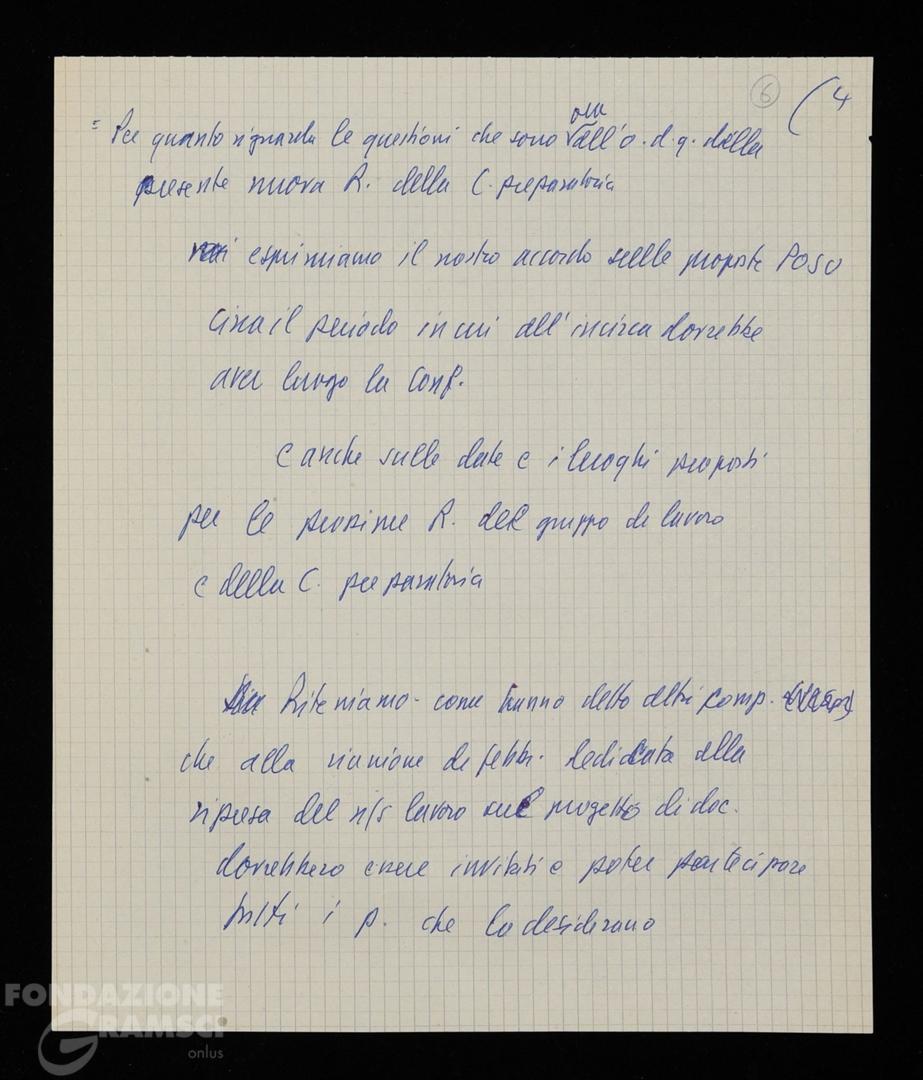 6 (4
= Per quanto riguarda le questioni che sono ora all'o.d.g. della
presente nuova R. della C. preparatoria
noi esprimiamo il nostro accordo sulle proposte POSU
circa il periodo in cui all'incirca dovrebbe
aver luogo la Conf.
e anche sulle date e i luoghi proposti
per le prossime R. del gruppo di lavoro
e della C. preparatoria
Riteniamo - come hanno detto altri comp.
che alla riunione di febbr. dedicata alla
ripresa del n/s lavoro sul progetto di doc.
dovrebbero essere invitati e poter partecipare
tutti i p. che lo desiderano
FONDAZIONE
GRAMSCI
onlus